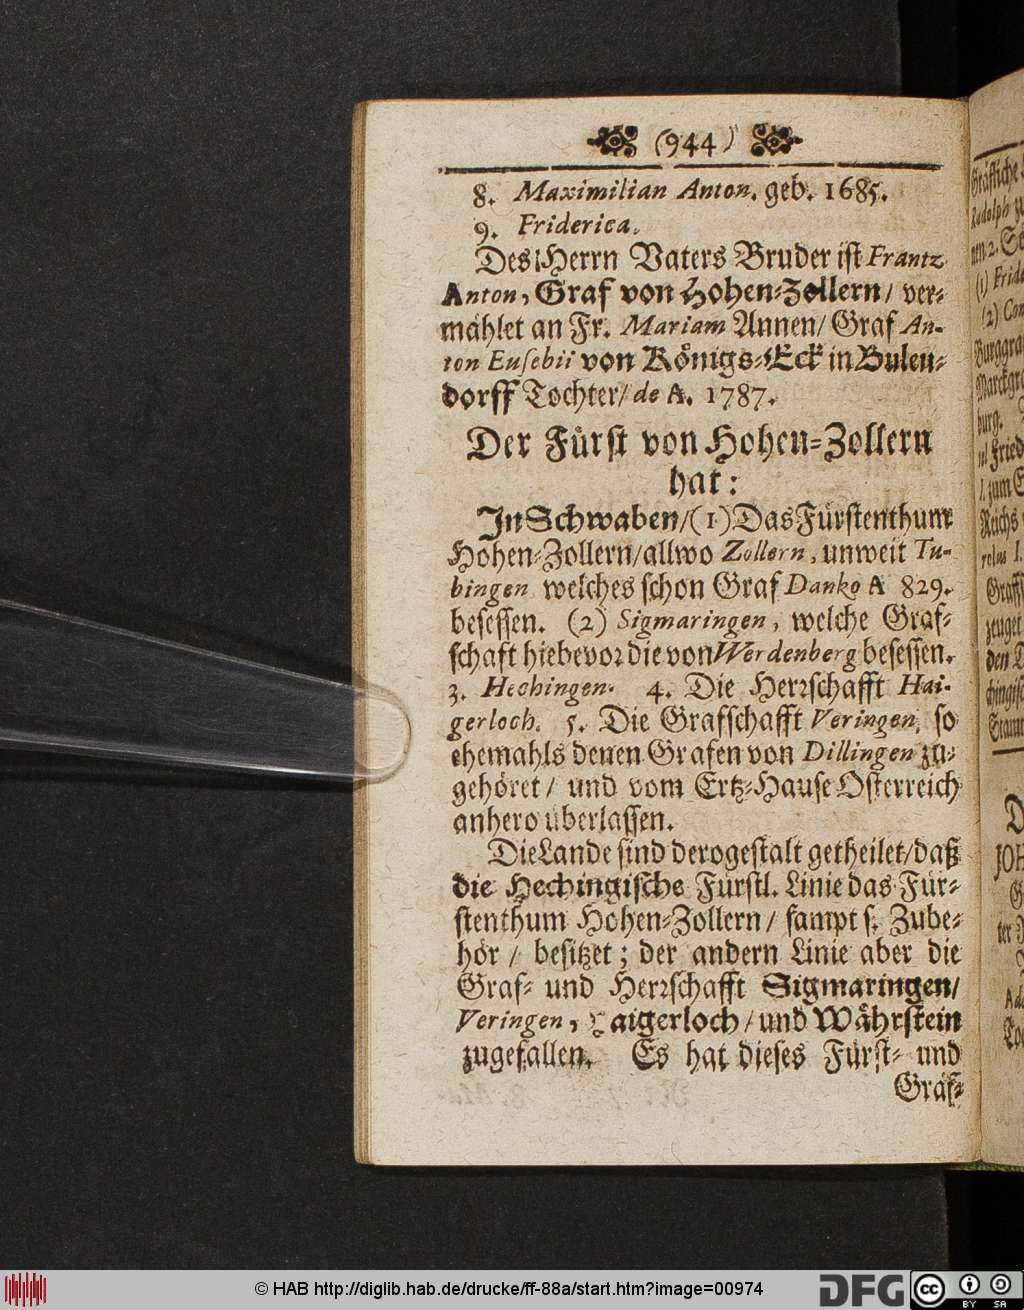 (944)
8. Maximilian Anton. geb. 1685.
9. Friderica.
Des Herrn Vaters Bruder ist Frantz
Anton, Graf von Hohen-Zollern/ ver-
mählet an Fr. Mariam Annen/ Graf An-
ton Eusebii von Königs-Eck in Bulen-
dorff Tochter/ de A. 1787.
Der Fürst von Hohen-Zollern
hat:
In Schwaben/ (1) Das Fürstenthum
Hohen-Zollern/ allwo Zollern, unweit Tu-
bingen welches schon Graf Danko A 829.
besessen. (2) Sigmaringen, welche Graf-
schaft hiebevor die von Werdenberg besessen.
3. Hechingen. 4. Die Herrschafft Hai-
gerloch. 5. Die Grafschafft Veringen, so
ehemahls denen Grafen von Dillingen zu-
gehöret/ und vom Ertz-Hause Osterreich
anhero überlassen.
Die Lande sind derogestalt getheilet/ daß
die Hechingische Fürstl. Linie das Für-
stenthum Hohen-Zollern/ sampt s. Zube-
hör/ besitzet; der andern Linie aber die
Graf- und Herrschafft Sigmaringen/
Veringen, Haigerloch/ und Währstein
zugefallen. Es hat dieses Fürst- und
Gräf-
© HAB http://diglib.hab.de/drucke/ff-88a/start.htm?image=00974
DFG
cc
BY SA